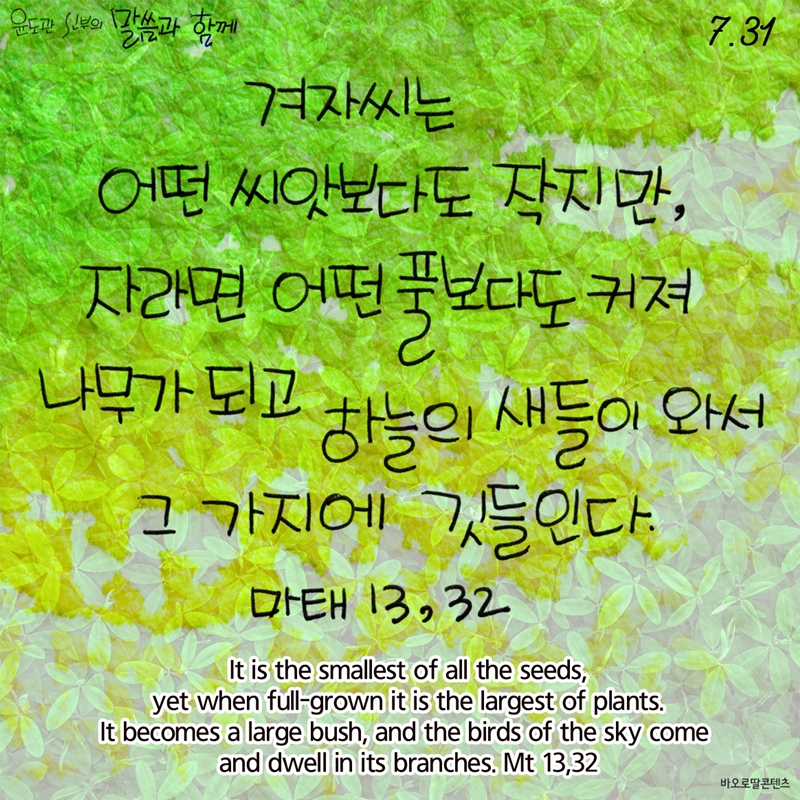 윤도관 신부의 말씀과 함께
7.31
겨자씨는
어떤 씨앗보다도 작지만,
자라면 어떤 풀보다도 커져
나무가 되고 하늘의 새들이 와서
그 가지에 깃들인다.
마태 13,32
It is the smallest of all the seeds,
yet when full-grown it is the largest of plants.
It becomes a large bush, and the birds of the sky come
and dwell in its branches. Mt 13,32
바오로딸콘텐츠